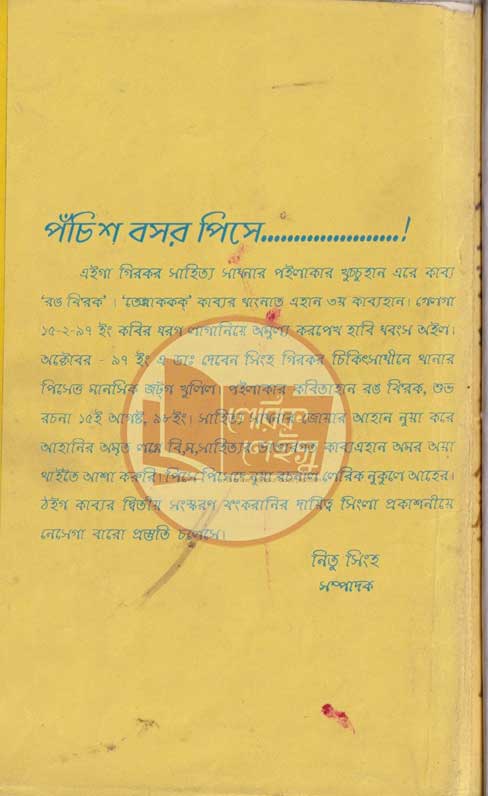 পঁচিশ বসর পিসে......................!
এইগা গিরকর সাহিত্য সাধনার পইলাকার খুচ্চুহান এরে কাব্য
‘রঙ বিরক’ । ‘তেন্নাককক্’ কাব্যর থংনাতে এহান ৩য় কাব্যহান। গেলগা
১৫-২-৯৭ ইং কবির ঘরগ লাগানিয়ে অমুল্য করপেখ হাবি ধবংস অইল।
অক্টোবর - ৯৭ ইং এ ডাঃ দেবেন সিংহ গিরকর চিকিৎসাধীনে থানার
পিসেত্ত মানসিক জট্গ খুলিল। পইলাকার কবিতাহান রঙ বিরক, শুভ
রচনা ১৫ই আগষ্ট, ৯৮ইং। সাহিত্য সাধনার জোয়ার আহান নুয়া করে
আহানির অমৃত বি,ম,সাহিত্যর কাব্যএহান অমর অয়া
থাইতৈ আশা করুরি। পিসে পিসেদে নুয়া লেরিক নুকুলে আহের।
ঠইগ কাব্যর দ্বিতীয় সংস্করণ ফংকরানির দায়িত্ব সিংলা প্রকাশনীয়ে
নেসেগা বারো প্রস্তুতি চলেসে।
নিতু সিংহ
সম্পাদক